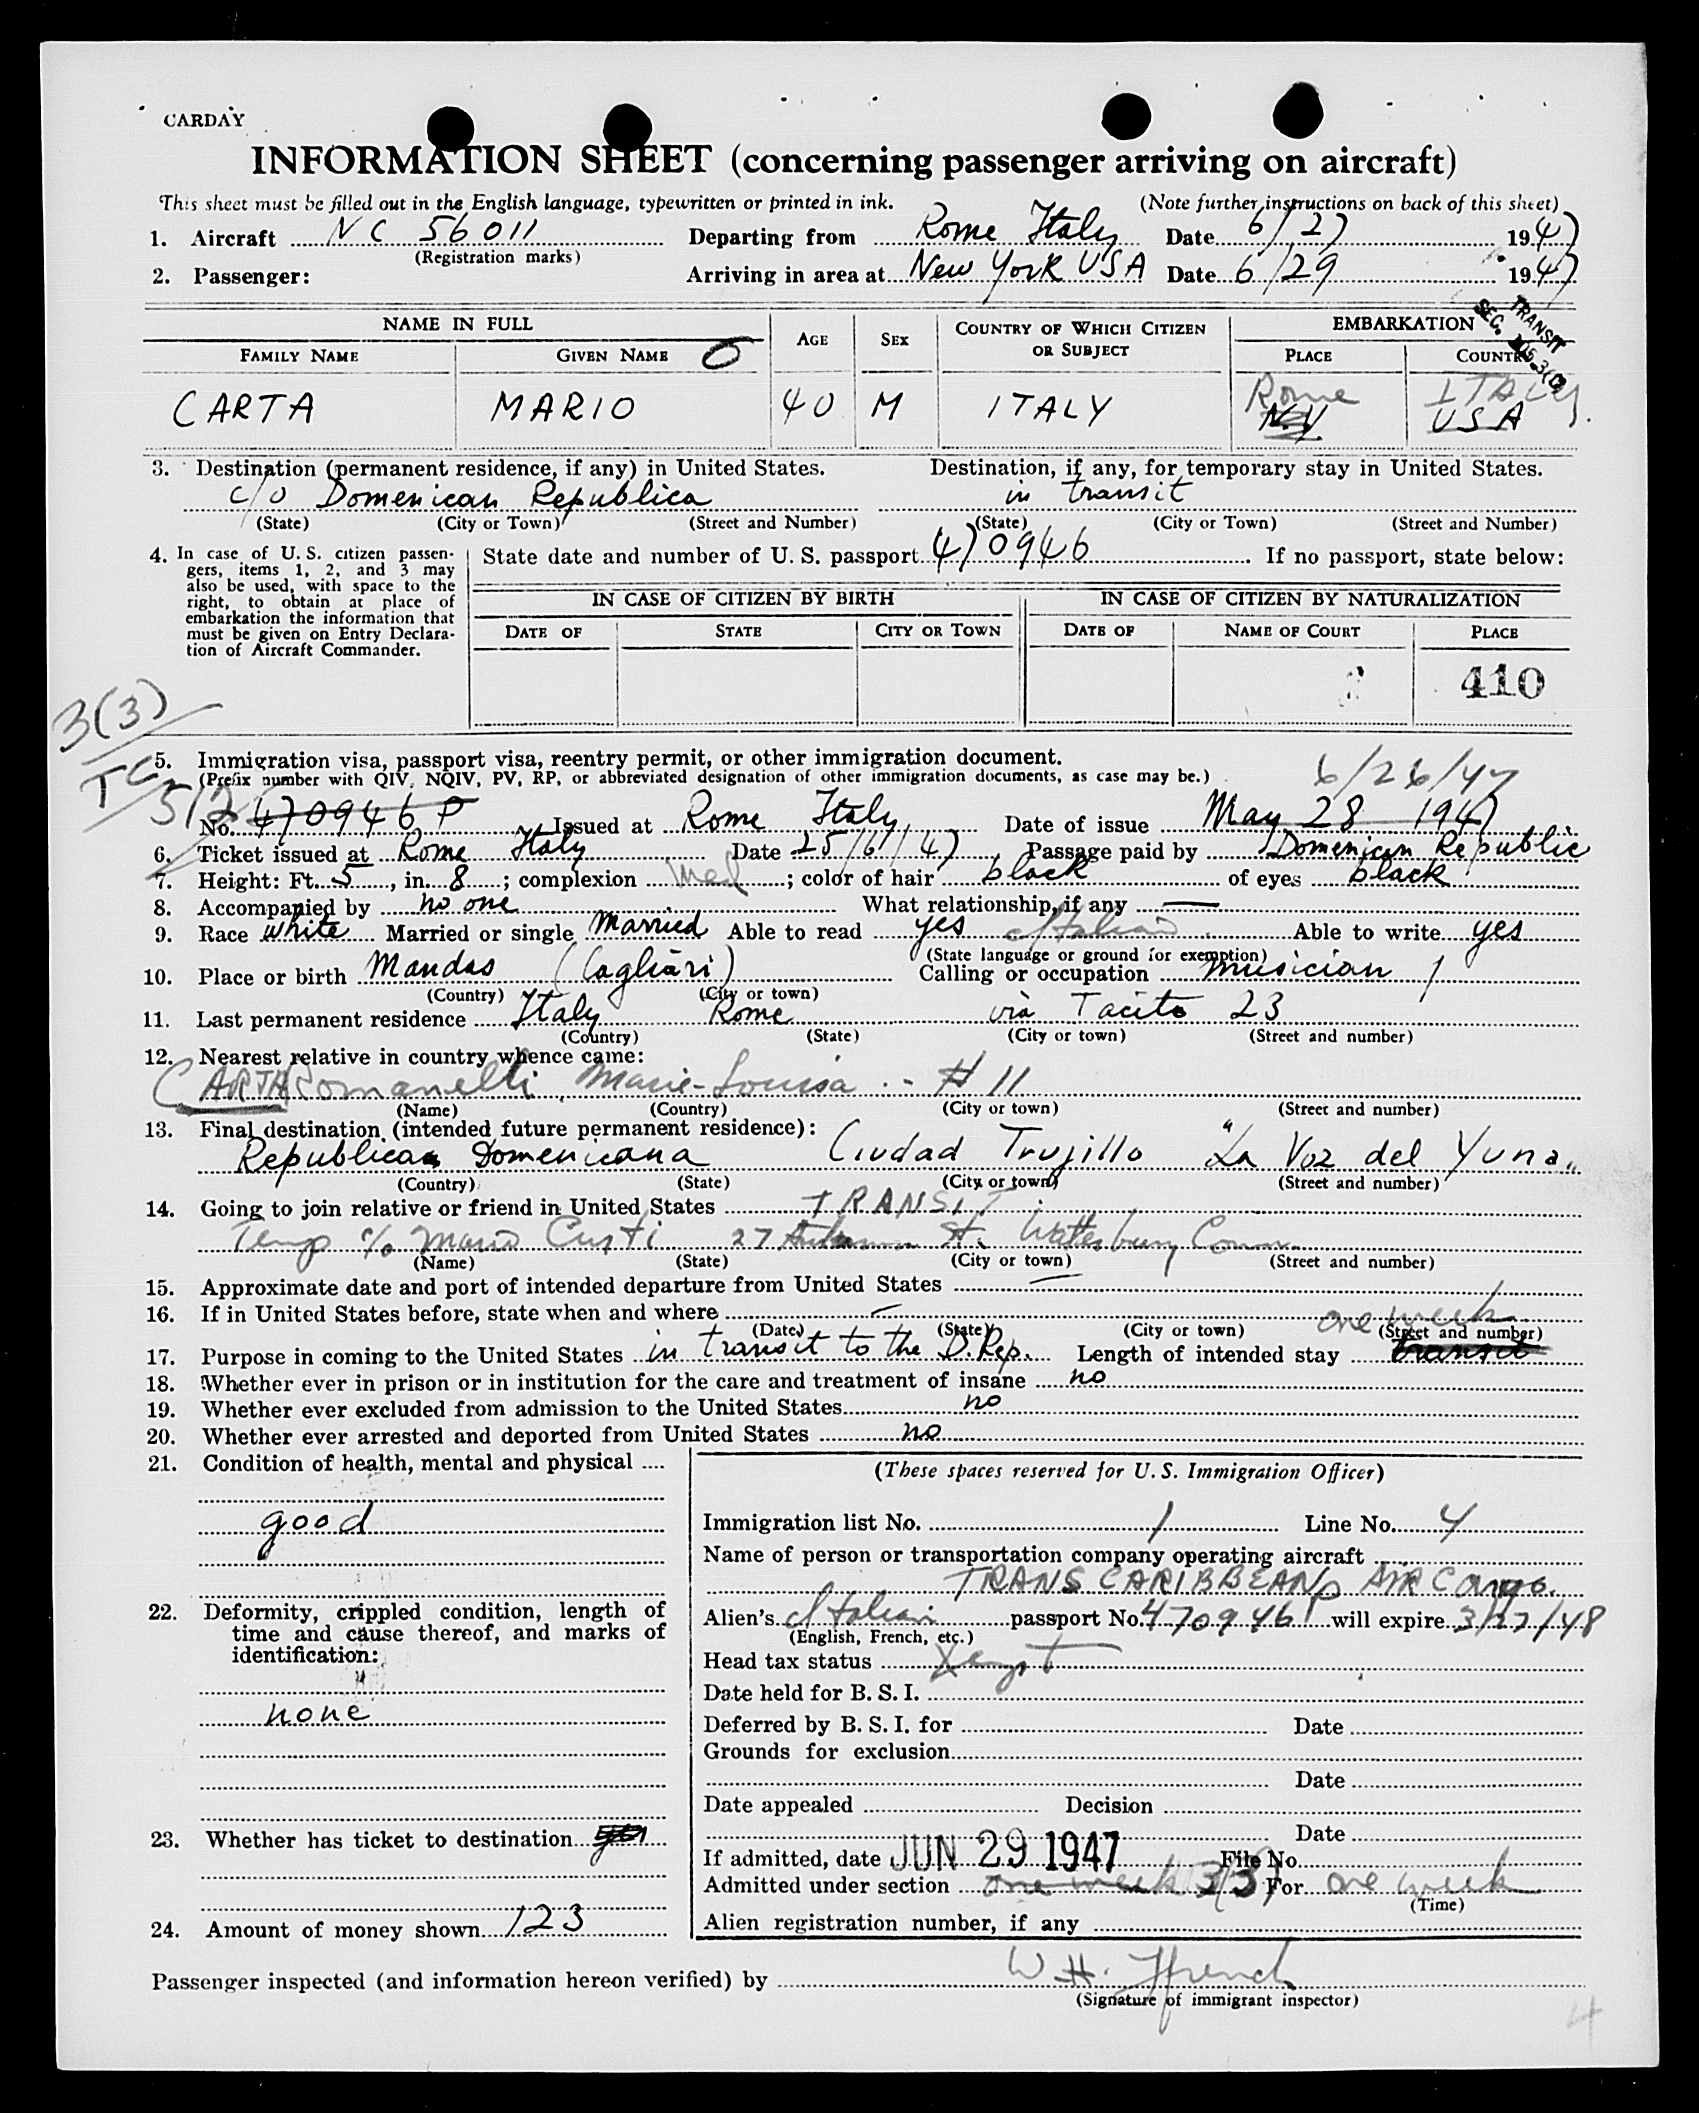 CARDAY
INFORMATION SHEET (concerning passenger arriving on aircraft)
This sheet must be filled out in the English language, typewritten or printed in ink. (Note further instructions on back of this sheet)
1. Aircraft NC 56011 Departing from Rome Italy Date 6/27 1947
(Registration marks)
2. Passenger: Arriving in area at New York USA Date 6/29 1947
TRANSIT
SEC. 3(3)
NAME IN FULL AGE SEX COUNTRY OF WHICH CITIZEN OR SUBJECT EMBARKATION
FAMILY NAME GIVEN NAME PLACE COUNTRY
Rome ITALY
CARTA MARIO 40 M ITALY N.Y USA
3. Destination (permanent residence, if any) in United States. Destination, if any, for temporary stay in United States.
c/o Domenican Republica in transit
(State) (City or Town) (Street and Number) (State) (City or Town) (Street and Number)
4. In case of U. S. citizen passengers, items 1, 2, and 3 may also be used, with space to the right, to obtain at place of embarkation the information that must be given on Entry Declaration of Aircraft Commander.
State date and number of U. S. passport 470946 If no passport, state below:
IN CASE OF CITIZEN BY BIRTH IN CASE OF CITIZEN BY NATURALIZATION
DATE OF STATE CITY OR TOWN DATE OF NAME OF COURT PLACE
410
3(3)
5. Immigration visa, passport visa, reentry permit, or other immigration document.
(Prefix number with QIV, NQIV, PV, RP, or abbreviated designation of other immigration documents, as case may be.) 6/26/47
TC 512
No. 470946 P Issued at Rome Italy Date of issue May 28 1947
6. Ticket issued at Rome Italy Date 25/6/47 Passage paid by Domenican Republic
7. Height: Ft. 5, in. 8; complexion Med; color of hair black of eyes black
8. Accompanied by no one What relationship, if any —
9. Race white Married or single Married Able to read yes Italian Able to write yes
(State language or ground for exemption)
10. Place or birth Mandas (Cagliari) Calling or occupation musician
(Country) (City or town)
11. Last permanent residence Italy Rome via Tacito 23
(Country) (State) (City or town) (Street and number)
12. Nearest relative in country whence came:
CARTA Romanelli Marie-Louisa - #11
(Name) (Country) (City or town) (Street and number)
13. Final destination (intended future permanent residence):
Republica Domenicana Ciudad Trujillo "La Voz del Yuna"
(Country) (State) (City or town) (Street and number)
14. Going to join relative or friend in United States TRANSIT
Temp c/o Mario Custi 27 St. Waterbury Conn
(Name) (State) (City or town) (Street and number)
15. Approximate date and port of intended departure from United States —
16. If in United States before, state when and where —
(Date) (State) (City or town) (Street and number)
one week
17. Purpose in coming to the United States in transit to the D. Rep. Length of intended stay transit
18. Whether ever in prison or in institution for the care and treatment of insane no
19. Whether ever excluded from admission to the United States no
20. Whether ever arrested and deported from United States no
21. Condition of health, mental and physical
good
22. Deformity, crippled condition, length of time and cause thereof, and marks of identification:
none
23. Whether has ticket to destination yes
24. Amount of money shown 123
(These spaces reserved for U. S. Immigration Officer)
Immigration list No. 1 Line No. 4
Name of person or transportation company operating aircraft
TRANS CARIBBEAN AIR Cargo
Alien's Italian passport No. 470946P will expire 3/27/48
(English, French, etc.)
Head tax status Xempt
Date held for B. S. I.
Deferred by B. S. I. for Date
Grounds for exclusion
Date
Date appealed Decision
Date
If admitted, date JUN 29 1947 File No.
Admitted under section one week 3(3) For one week
(Time)
Alien registration number, if any
Passenger inspected (and information hereon verified) by W H. Ffrench
(Signature of immigrant inspector)
4